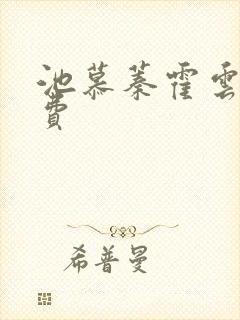 池慕蓁霍雲
費
希普曼